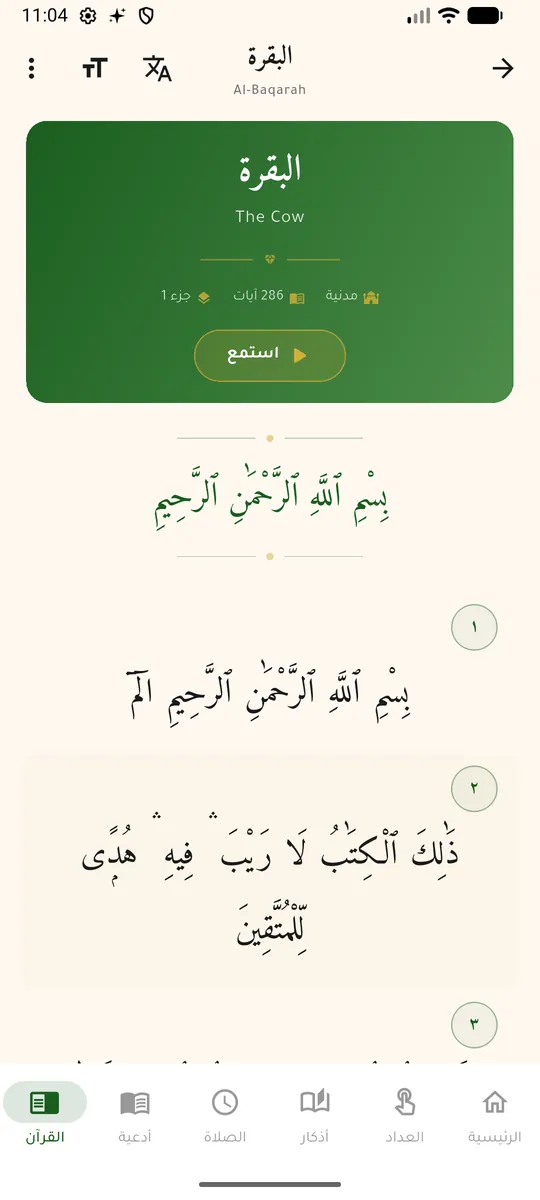 11:04
البقرة
Al-Baqarah
البقرة
The Cow
مدنية
286 آيات
جزء 1
استمع
بِسْمِ ٱللَّهِ ٱلرَّحْمَٰنِ ٱلرَّحِيمِ
١
بِسْمِ ٱللَّهِ ٱلرَّحْمَٰنِ ٱلرَّحِيمِ الٓمٓ
٢
ذَٰلِكَ ٱلْكِتَٰبُ لَا رَيْبَ ۛ فِيهِ ۛ هُدًۭى
لِّلْمُتَّقِينَ
٣
الرئيسية
العداد
أذكار
الصلاة
أدعية
القرآن